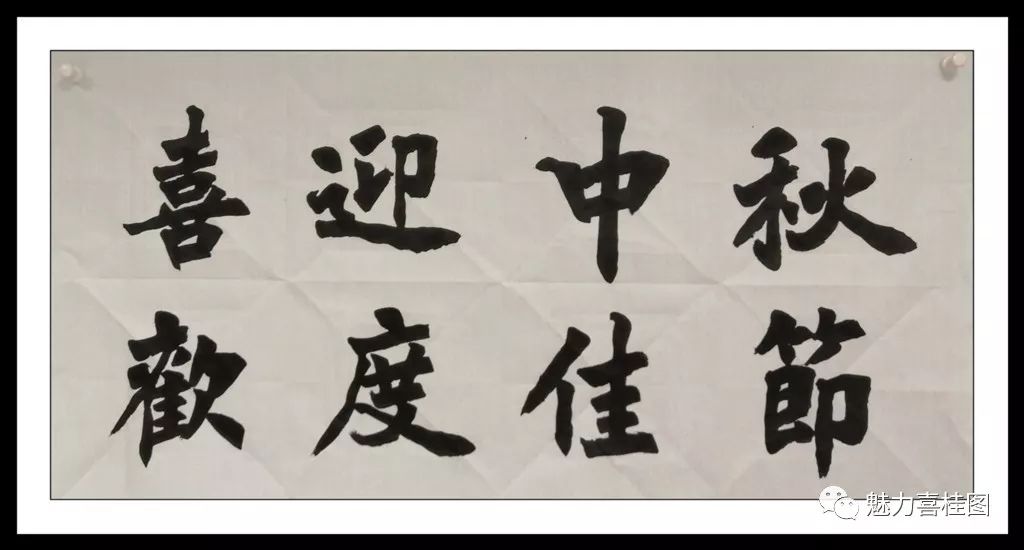 喜迎中秋
歡度佳節
魅力喜桂图